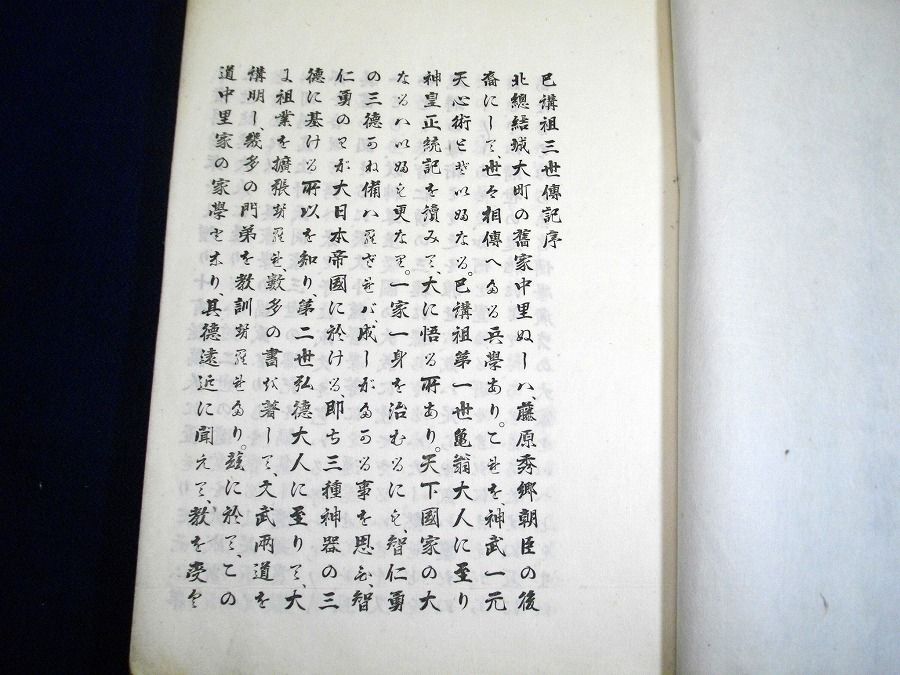 已講祖三世傳記序
北總結城大町の舊家中里ぬしハ、藤原秀鄉朝臣の後
裔にして、世々相傳へたる兵學あり。これを、神武一元
天心術とぞいふなる。已講祖第一世龜翁大人に至り
神皇正統記を讀みて、大に悟る所あり。天下國家の大
なるハいふも更なり。一家一身を治むるにも、智仁勇
の三德かね備ハらざれバ、成しがたかる事を思ひ、智
仁勇のわが大日本帝國に於ける、即ち三種神器の三
德に基ける所以を知り、第二世弘德大人に至りて、大
に祖業を擴張せられ、數多の書を著して、文武兩道を
講明し、幾多の門弟を教訓せられたり。玆に於て、この
道中里家の家學となり其德遠近に聞えて、教を受く